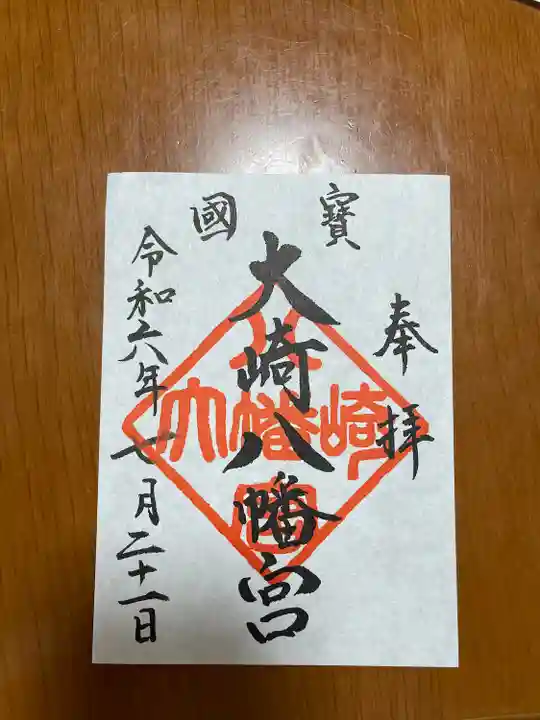 奉拝
國寳
大崎八幡宮
令和六年七月二十一日
大崎八幡宮